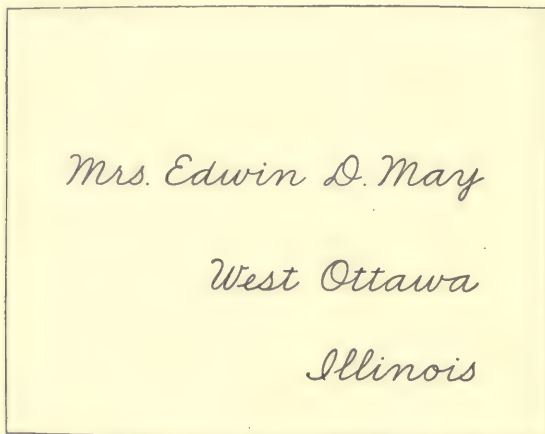 Mrs. Edwin D. May
West Ottawa
Illinois